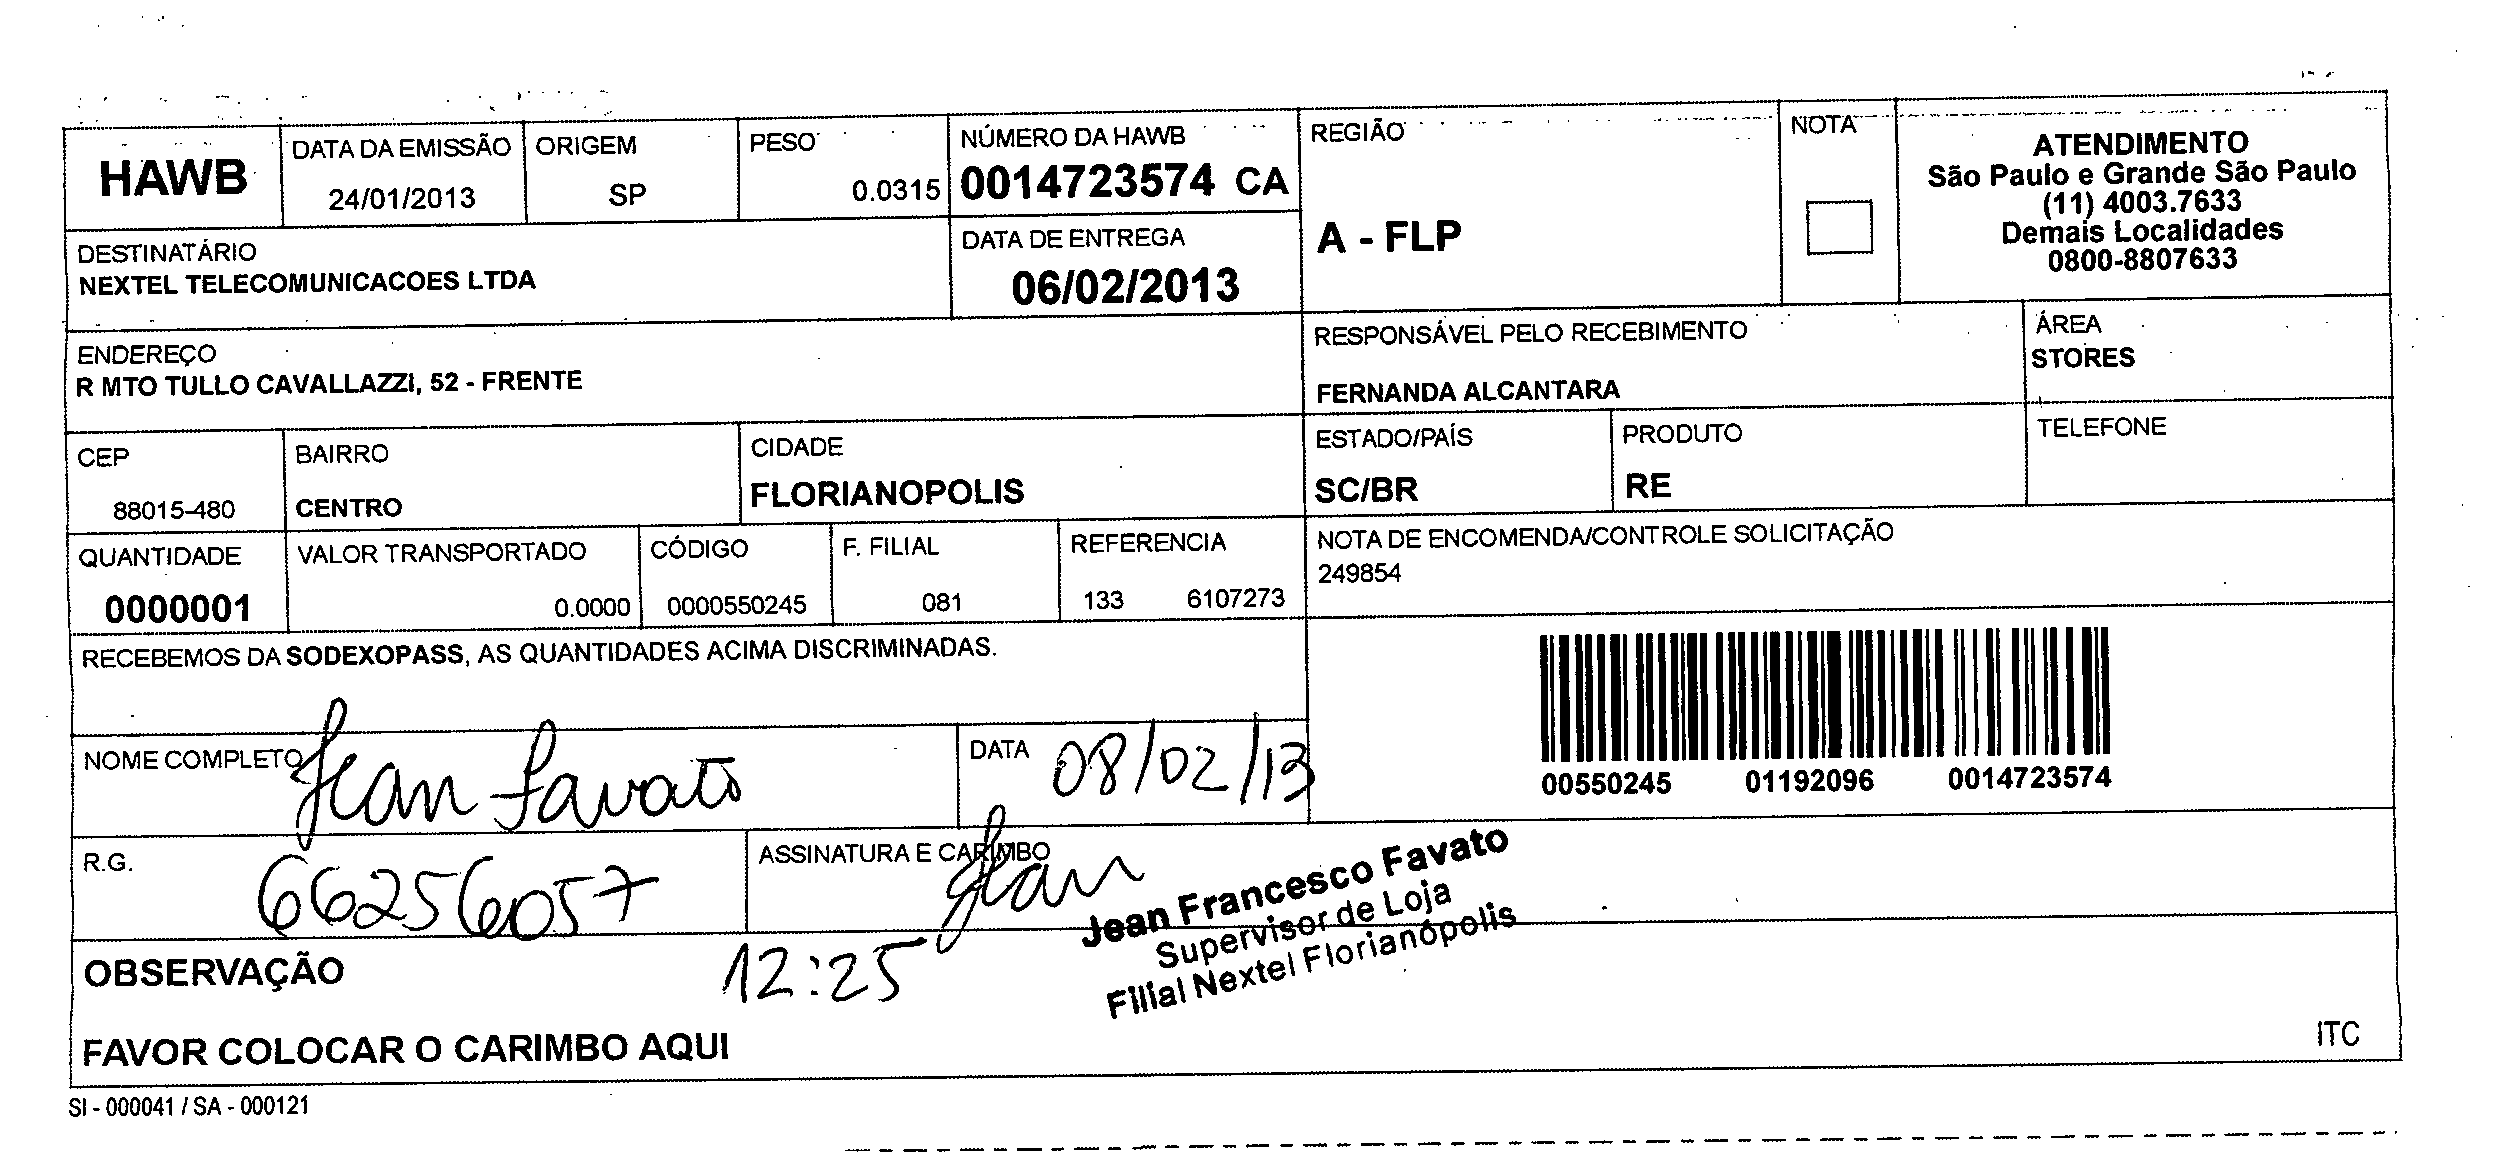 HAWB
DATA DA EMISSÃO
24/01/2013
ORIGEM
SP
PESO
0.0315
NÚMERO DA HAWB
0014723574 CA
REGIÃO
A - FLP
NOTA
ATENDIMENTO
São Paulo e Grande São Paulo
(11) 4003.7633
Demais Localidades
0800-8807633
DESTINATÁRIO
NEXTEL TELECOMUNICACOES LTDA
DATA DE ENTREGA
06/02/2013
ENDEREÇO
R MTO TULLO CAVALLAZZI, 52 - FRENTE
RESPONSÁVEL PELO RECEBIMENTO
FERNANDA ALCANTARA
ÁREA
STORES
CEP
88015-480
BAIRRO
CENTRO
CIDADE
FLORIANOPOLIS
ESTADO/PAÍS
SC/BR
PRODUTO
RE
TELEFONE
QUANTIDADE
0000001
VALOR TRANSPORTADO
0.0000
CÓDIGO
0000550245
F. FILIAL
081
REFERENCIA
133 6107273
NOTA DE ENCOMENDA/CONTROLE SOLICITAÇÃO
249854
RECEBEMOS DA SODEXOPASS, AS QUANTIDADES ACIMA DISCRIMINADAS.
00550245 01192096 0014723574
NOME COMPLETO Jean Favato
DATA 08/02/13
R.G. 66256057
ASSINATURA E CARIMBO Jean
Jean Francesco Favato
Supervisor de Loja
Filial Nextel Florianópolis
OBSERVAÇÃO
12:25
FAVOR COLOCAR O CARIMBO AQUI
ITC
SI - 000041 / SA - 000121